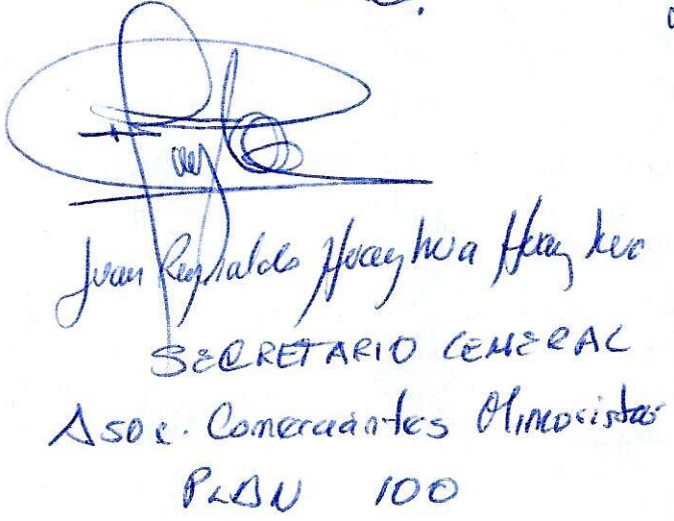 Juan Reynaldo Huayhua Huayhua
SECRETARIO GENERAL
Asoc. Comerciantes Minoristas
PLAN 100